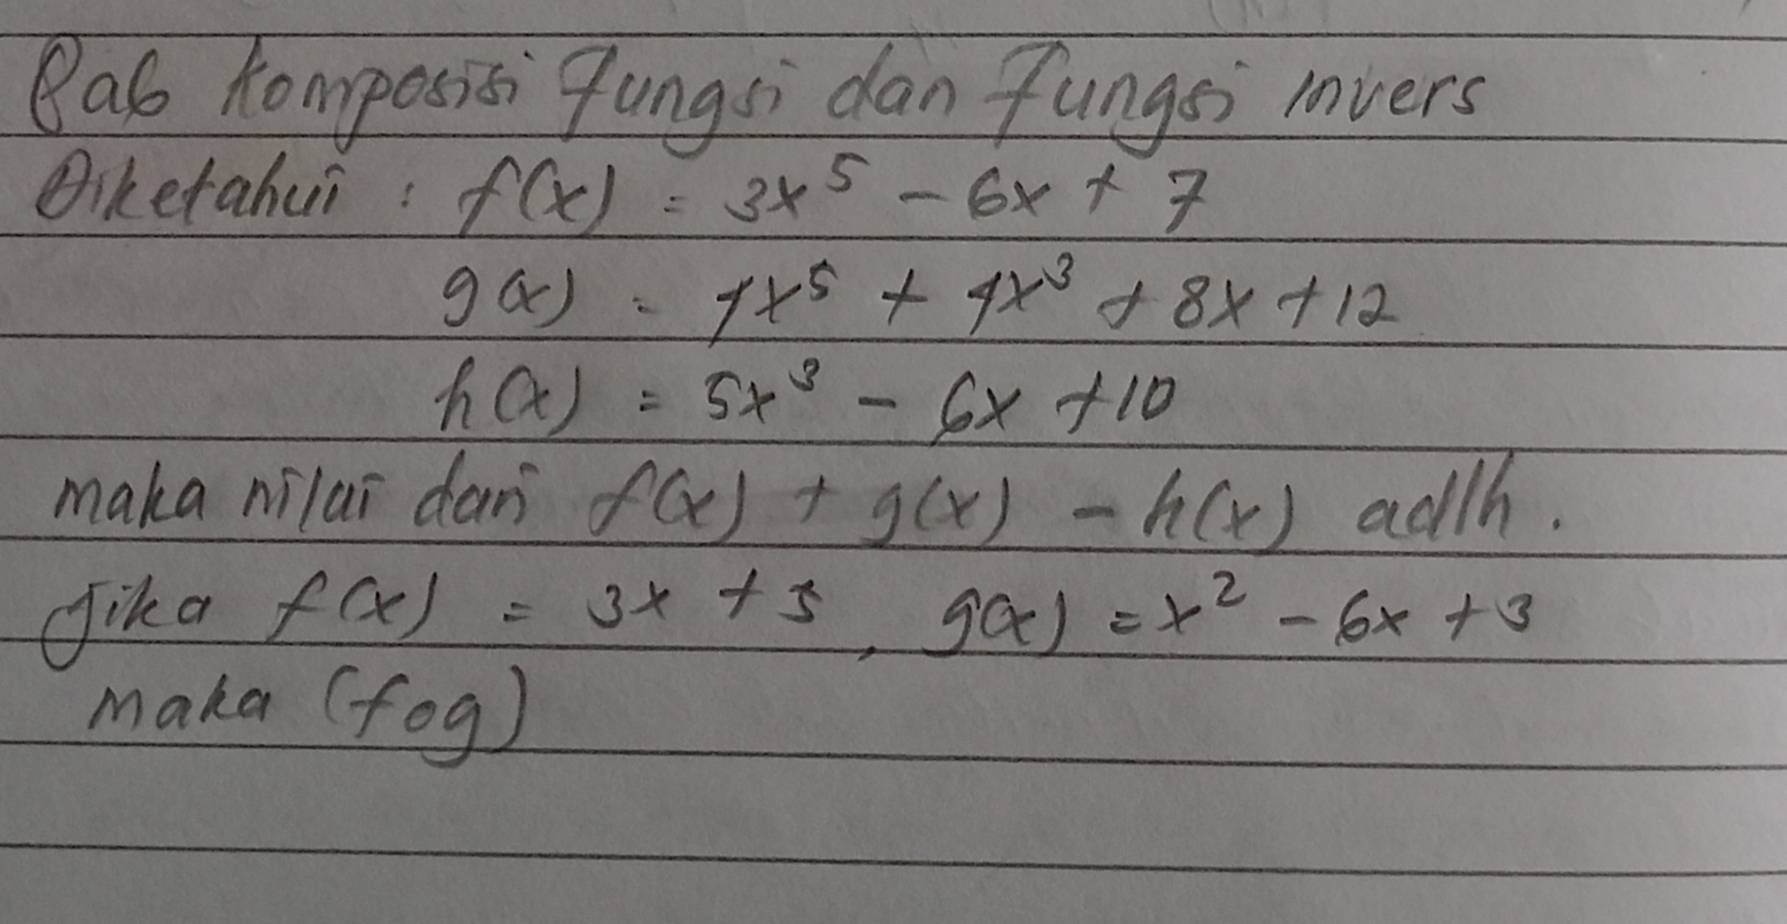 Bab Komposisi fungsi dan Fungsi invers
Diketahui : f(x) = 3x⁵ - 6x + 7
g(x) = 7x⁵ + 4x³ + 8x + 12
h(x) = 5x³ - 6x + 10
maka nilai dari f(x) + g(x) - h(x) adlh.
Jika f(x) = 3x + 5, g(x) = x² - 6x + 3
maka (fog)